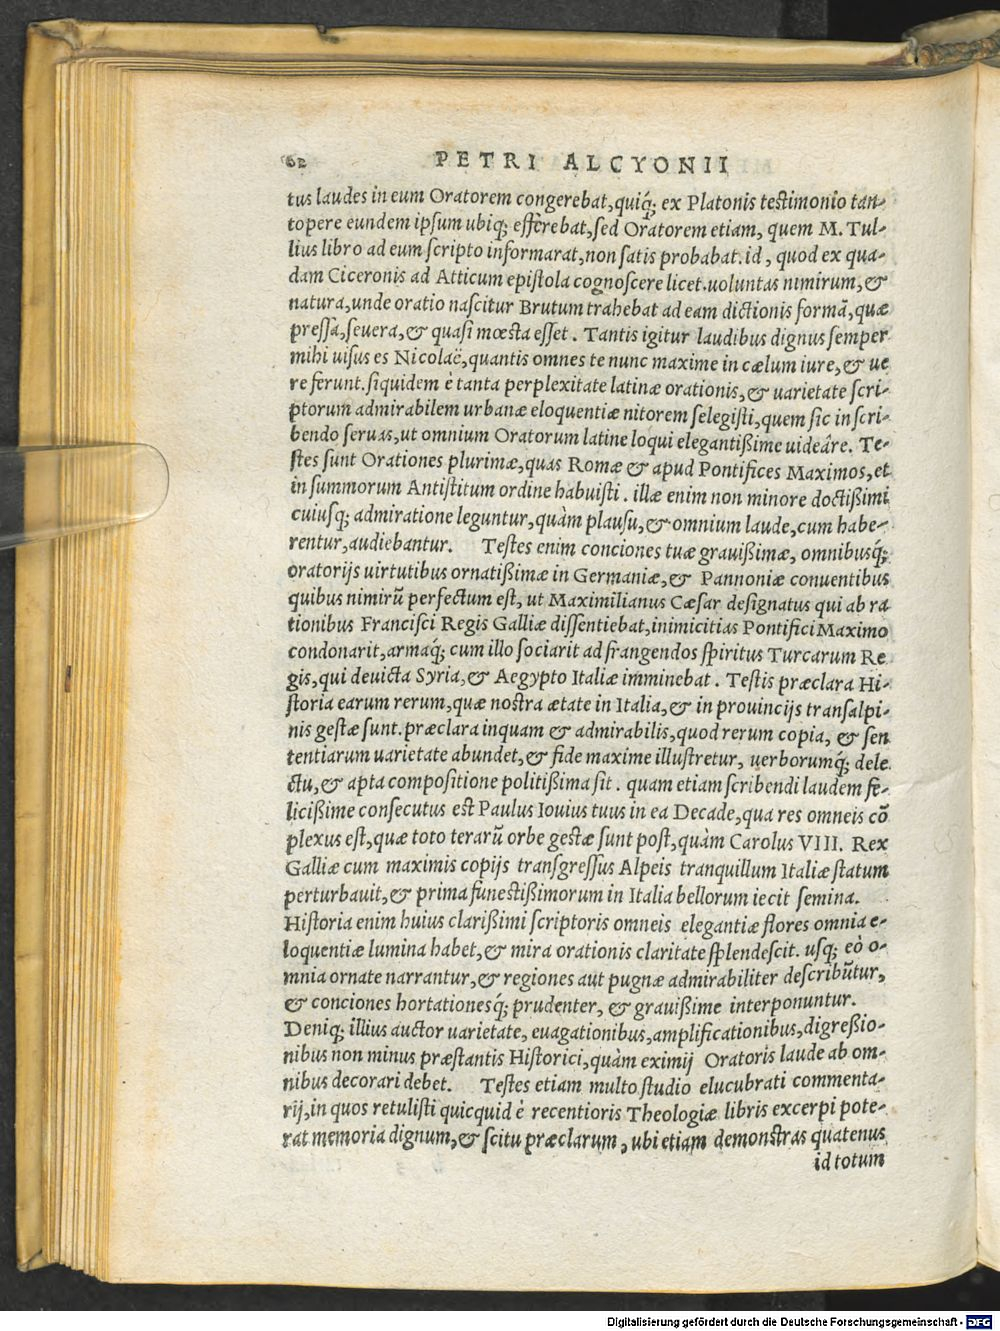 62 PETRI ALCYONII
tus laudes in eum Oratorem congerebat, quiq́; ex Platonis testimonio tan-
topere eundem ipsum ubiq; efferebat, sed Oratorem etiam, quem M. Tul-
lius libro ad eum scripto informarat, non satis probabat. id, quod ex qua-
dam Ciceronis ad Atticum epistola cognoscere licet. uoluntas nimirum, &
natura, unde oratio nascitur Brutum trahebat ad eam dictionis formā, quæ
pressa, seuera, & quasi mœsta esset. Tantis igitur laudibus dignus semper
mihi uisus es Nicolaë, quantis omnes te nunc maxime in cælum iure, & ue
re ferunt. siquidem è tanta perplexitate latinæ orationis, & uarietate scri-
ptorum admirabilem urbanæ eloquentiæ nitorem selegisti, quem sic in scri-
bendo seruas, ut omnium Oratorum latine loqui elegantißime uideâre. Te-
stes sunt Orationes plurimæ, quas Romæ & apud Pontifices Maximos, et
in summorum Antistitum ordine habuisti. illæ enim non minore doctißimi
cuiusq; admiratione leguntur, quàm plausu, & omnium laude, cum habe-
rentur, audiebantur. Testes enim conciones tuæ grauißimæ, omnibusq́;
oratorijs uirtutibus ornatißimæ in Germaniæ, & Pannoniæ conuentibus
quibus nimirū perfectum est, ut Maximilianus Cæsar designatus qui ab ra
tionibus Francisci Regis Galliæ dissentiebat, inimicitias Pontifici Maximo
condonarit, armaq́; cum illo sociarit ad frangendos spiritus Turcarum Re
gis, qui deuicta Syria, & Aegypto Italiæ imminebat. Testis præclara Hi-
storia earum rerum, quæ nostra ætate in Italia, & in prouincijs transalpi-
nis gestæ sunt. præclara inquam & admirabilis, quod rerum copia, & sen
tentiarum uarietate abundet, & fide maxime illustretur, uerborumq́; dele
ctu, & apta compositione politißima sit. quam etiam scribendi laudem fe-
licißime consecutus est Paulus Iouius tuus in ea Decade, qua res omneis cō
plexus est, quæ toto terarū orbe gestæ sunt post, quàm Carolus VIII. Rex
Galliæ cum maximis copijs transgressus Alpeis tranquillum Italiæ statum
perturbauit, & prima funestißimorum in Italia bellorum iecit semina.
Historia enim huius clarißimi scriptoris omneis elegantiæ flores omnia e-
loquentiæ lumina habet, & mira orationis claritate splendescit. usq; eò o-
mnia ornate narrantur, & regiones aut pugnæ admirabiliter describūtur,
& conciones hortationesq́; prudenter, & grauißime interponuntur.
Deniq; illius auctor uarietate, euagationibus, amplificationibus, digreßio-
nibus non minus præstantis Historici, quàm eximij Oratoris laude ab om-
nibus decorari debet. Testes etiam multo studio elucubrati commenta-
rij, in quos retulisti quicquid è recentioris Theologiæ libris excerpi pote-
rat memoria dignum, & scitu præclarum, ubi etiam demonstras quatenus
id totum
Digitalisierung gefördert durch die Deutsche Forschungsgemeinschaft - DFG